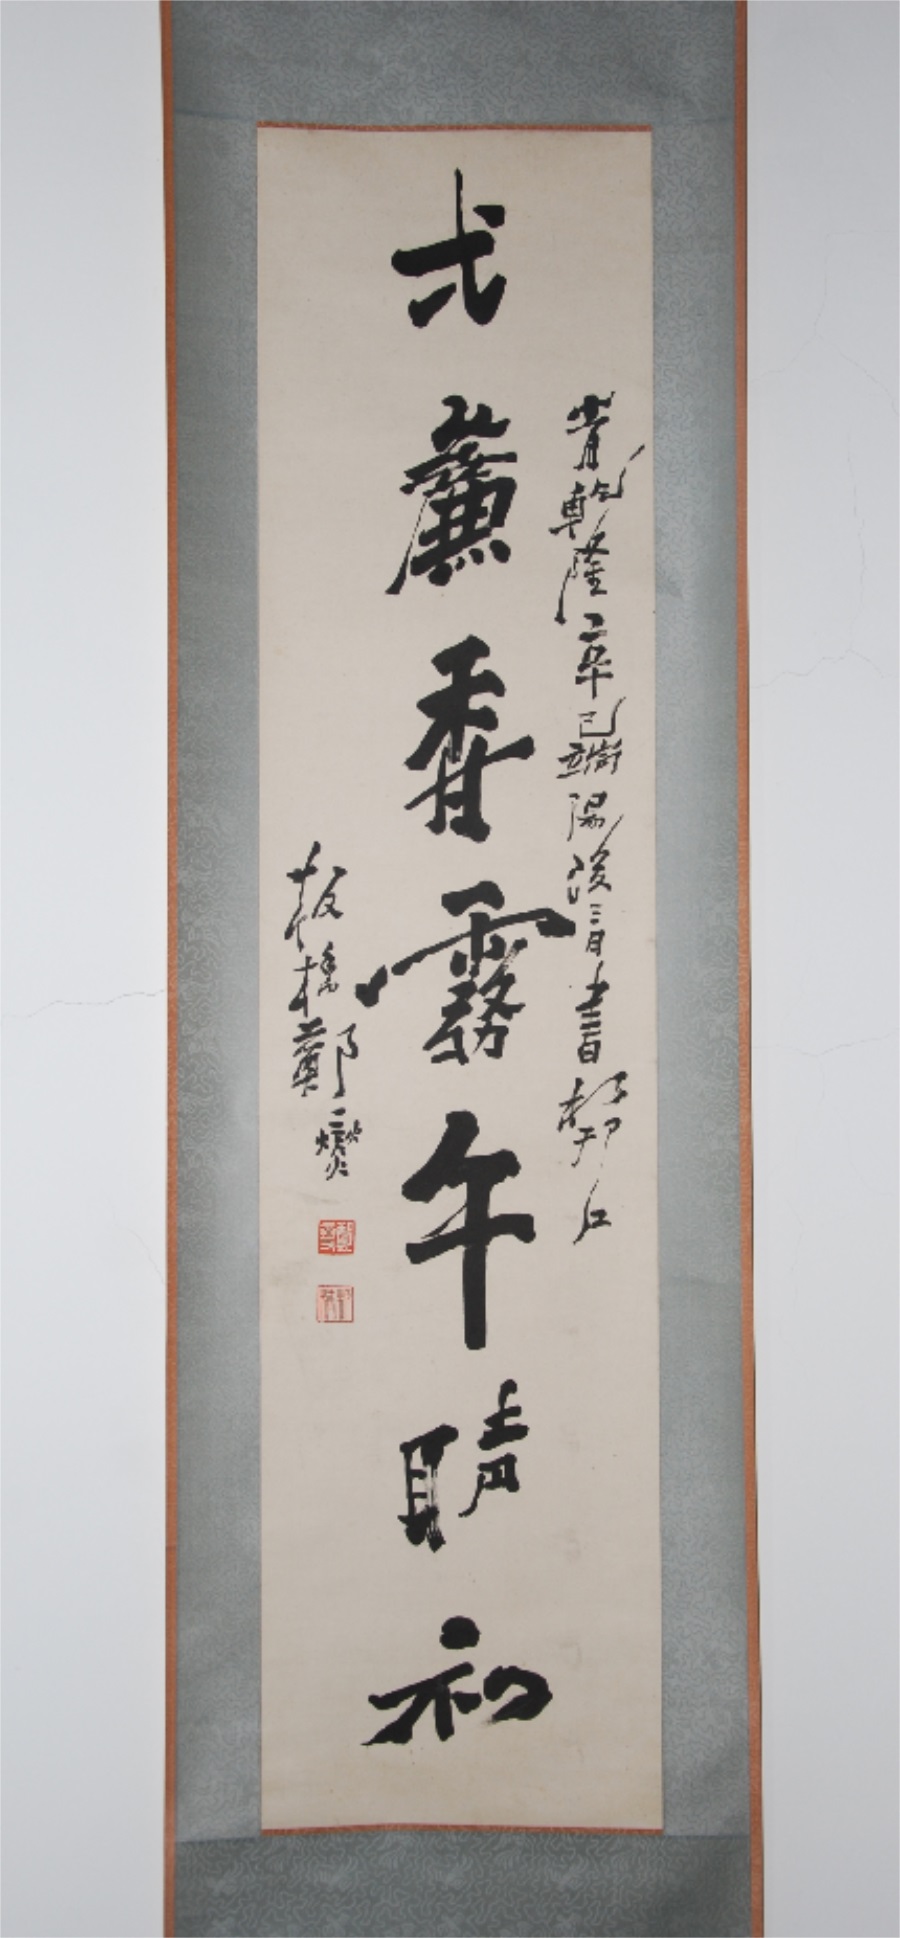 旹乾隆辛巳端陽後三日書於邗江
弌簾香霧午晴初
板橋鄭燮